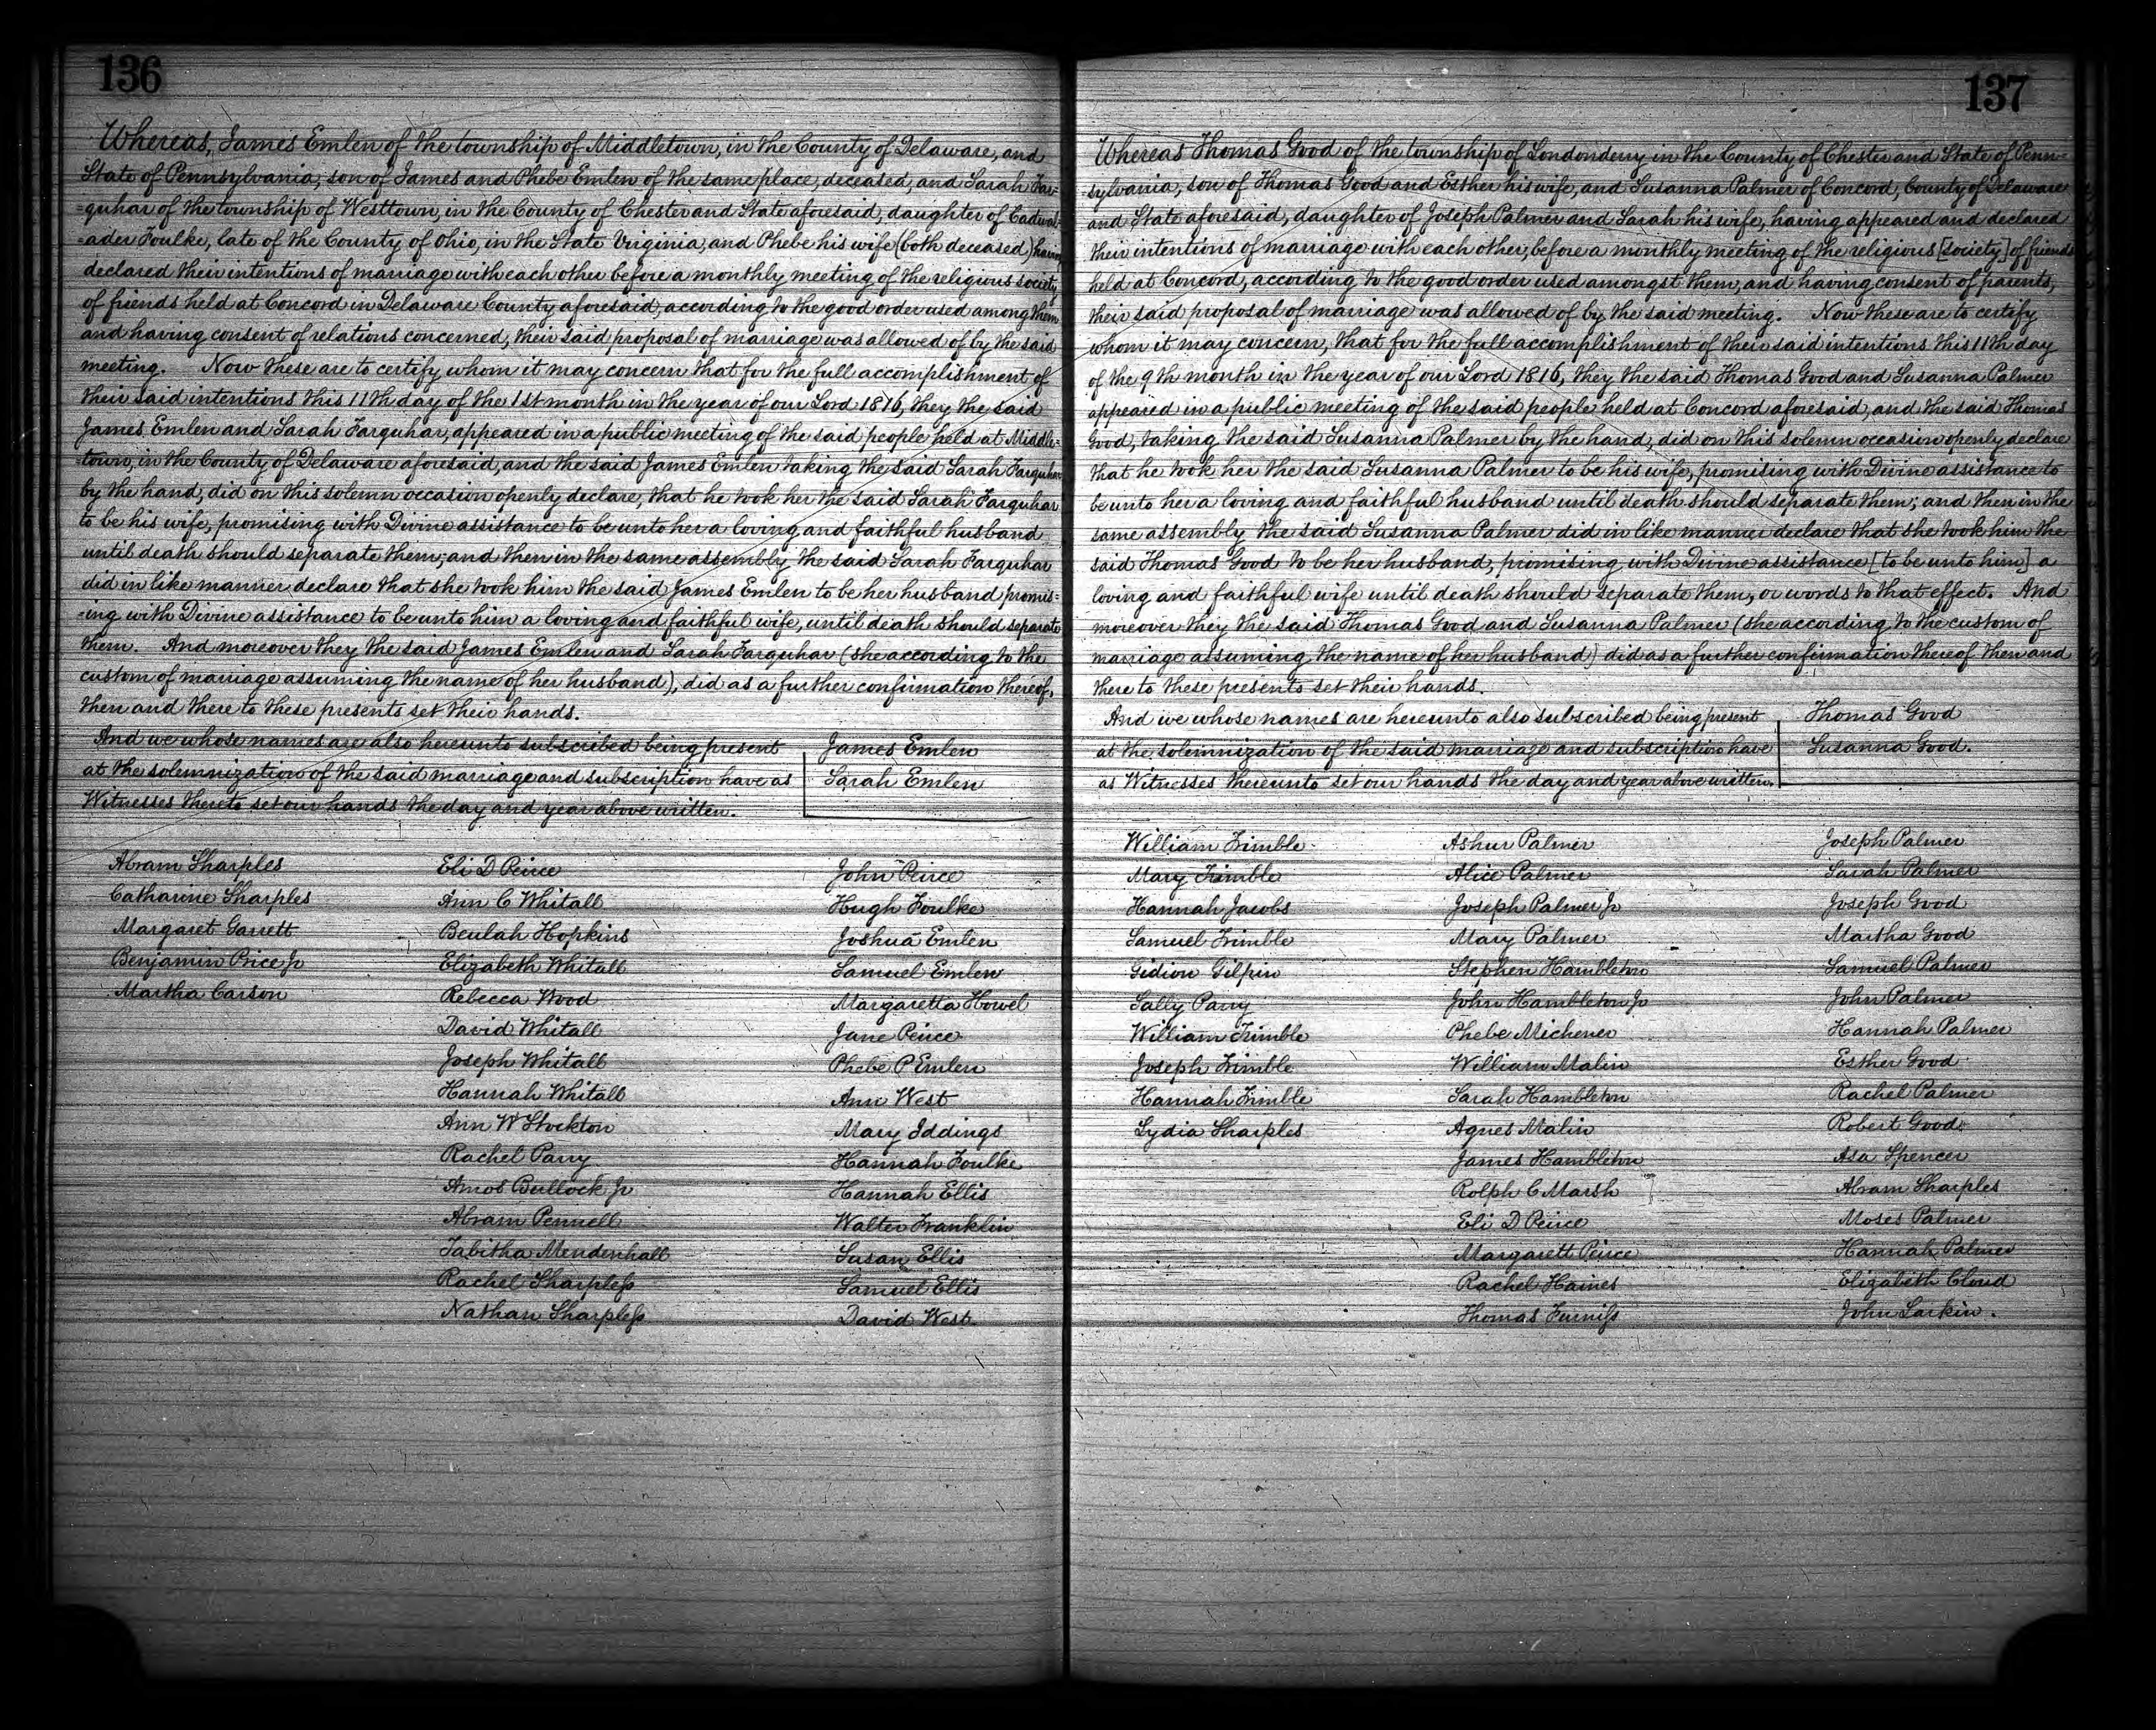 136
Whereas, James Emlen of the township of Middletown, in the County of Delaware, and
State of Pennsylvania, son of James and Phebe Emlen of the same place, deceased, and Sarah Far=
=quhar of the township of Westtown, in the County of Chester and State aforesaid, daughter of Cadwal=
=ader Foulke, late of the County of Ohio, in the State Virginia, and Phebe his wife (both deceased) having
declared their intentions of marriage with each other before a monthly meeting of the religious society
of friends held at Concord in Delaware County aforesaid, according to the good order used among them
and having consent of relations concerned, their said proposal of marriage was allowed of by the said
meeting. Now these are to certify whom it may concern that for the full accomplishment of
their said intentions this 11th day of the 1st month in the year of our Lord 1816, they the said
James Emlen and Sarah Farquhar, appeared in a public meeting of the said people held at Middle=
=town, in the County of Delaware aforesaid, and the said James Emlen taking the said Sarah Farquhar
by the hand, did on this solemn occasion openly declare, that he took her the said Sarah Farquhar
to be his wife, promising with Divine assistance to be unto her a loving and faithful husband
until death should separate them; and then in the same assembly the said Sarah Farquhar
did in like manner declare that she took him the said James Emlen to be her husband promis=
=ing with Divine assistance to be unto him a loving and faithful wife, until death should separate
them. And moreover they the said James Emlen and Sarah Farquhar (she according to the
custom of marriage assuming the name of her husband), did as a further confirmation thereof,
then and there to these presents set their hands.
And we whose names are also hereunto subscribed being present
at the solemnization of the said marriage and subscription have as
Witnesses thereto set our hands the day and year above written.
James Emlen
Sarah Emlen
Abram Sharples
Catharine Sharples
Margaret Garrett
Benjamin Price Jr
Martha Carson
Eli D Peirce
Ann C Whitall
Beulah Hopkins
Elizabeth Whitall
Rebecca Wood
David Whitall
Joseph Whitall
Hannah Whitall
Ann W Stockton
Rachel Parry
Amos Bullock Jr
Abram Pennell
Tabitha Mendenhall
Rachel Sharpless
Nathan Sharpless
John Peirce
Hugh Foulke
Joshua Emlen
Samuel Emlen
Margaretta Howel
Jane Peirce
Phebe P Emlen
Ann West
Mary Iddings
Hannah Foulke
Hannah Ellis
Walter Franklin
Susan Ellis
Samuel Ellis
David West
137
Whereas Thomas Good of the township of Londonderry in the County of Chester and State of Penn=
sylvania, son of Thomas Good and Esther his wife, and Susanna Palmer of Concord, County of Delaware
and State aforesaid, daughter of Joseph Palmer and Sarah his wife, having appeared and declared
their intentions of marriage with each other, before a monthly meeting of the religious [society] of friends
held at Concord, according to the good order used amongst them, and having consent of parents,
their said proposal of marriage was allowed of by the said meeting. Now these are to certify
whom it may concern, that for the full accomplishment of their said intentions this 11th day
of the 9th month in the year of our Lord 1816, they the said Thomas Good and Susanna Palmer
appeared in a public meeting of the said people held at Concord aforesaid, and the said Thomas
Good, taking the said Susanna Palmer by the hand, did on this solemn occasion openly declare
that he took her the said Susanna Palmer to be his wife, promising with Divine assistance to
be unto her a loving and faithful husband until death should separate them; and then in the
same assembly the said Susanna Palmer did in like manner declare that she took him the
said Thomas Good to be her husband, promising with Divine assistance [to be unto him] a
loving and faithful wife until death should separate them, or words to that effect. And
moreover they the said Thomas Good and Susanna Palmer (she according to the custom of
marriage assuming the name of her husband) did as a further confirmation thereof then and
there to these presents set their hands.
And we whose names are hereunto also subscribed being present
at the solemnization of the said marriage and subscription have
as Witnesses thereunto set our hands the day and year above written.
Thomas Good
Susanna Good.
William Trimble
Mary Trimble
Hannah Jacobs
Samuel Trimble
Gidion Gilpin
Sally Parry
William Trimble
Joseph Trimble
Hannah Trimble
Lydia Sharples
Ashur Palmer
Alice Palmer
Joseph Palmer Jr
Mary Palmer
Stephen Hambleton
John Hambleton Jr
Phebe Michener
William Malin
Sarah Hambleton
Agnes Malin
James Hambleton
Rolph C Marsh
Eli D Peirce
Margarett Peirce
Rachel Haines
Thomas Furniss
Joseph Palmer
Sarah Palmer
Joseph Good
Martha Good
Samuel Palmer
John Palmer
Hannah Palmer
Esther Good
Rachel Palmer
Robert Good
Asa Spencer
Abram Sharples
Moses Palmer
Hannah Palmer
Elizabeth Cloud
John Larkin.